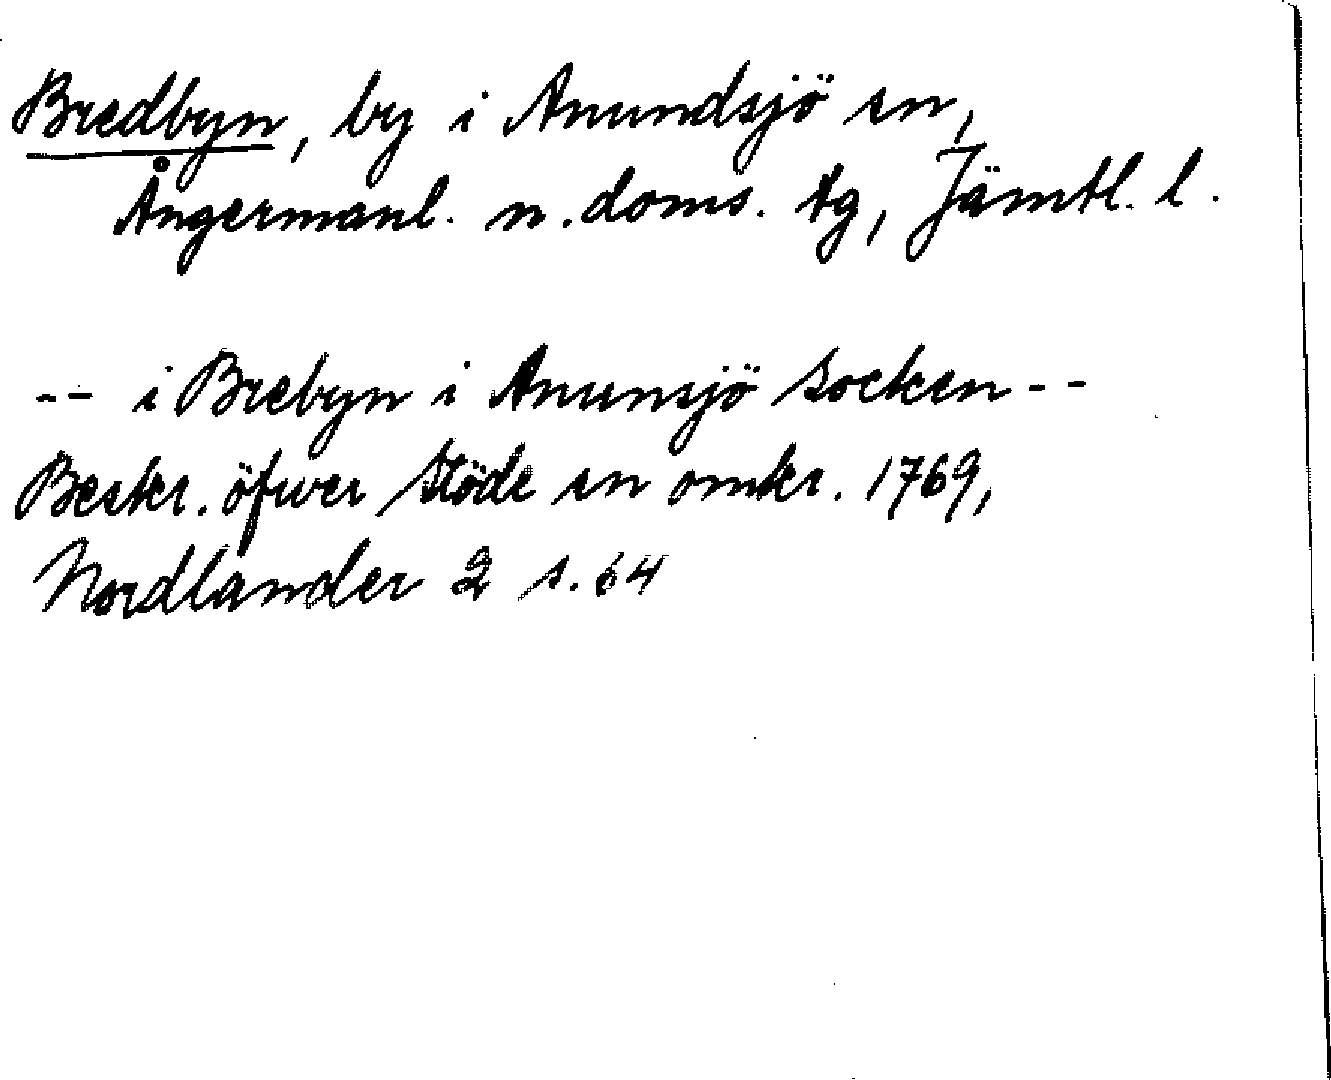 Bredbyn, by i Anundsjö sn,
Ångermanl. n. doms. tg, Jämtl. l.
-- i Brebyn i Anunsjö Socken --
Beskr. öfwer Stöde sn omkr. 1769,
Nordlander 2 s. 64